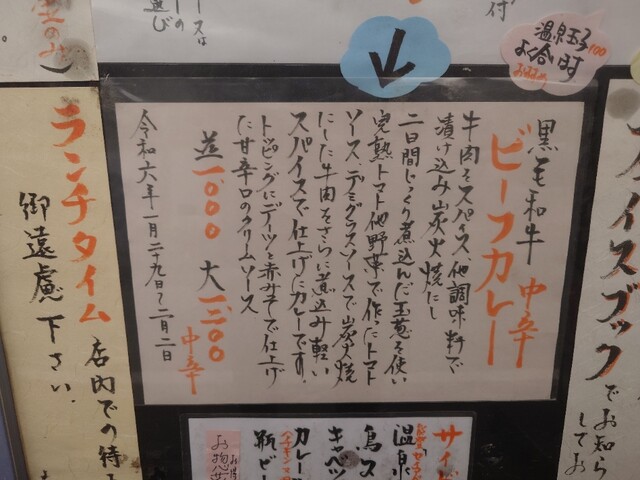 温泉玉子100
よく合います
おすすめ
黒毛和牛
ビーフカレー 中辛
牛肉をスパイス、他調味料で
漬け込み炭火焼にし
二日間じっくり煮込んだ玉葱を使い
完熟トマト他野菜で作ったトマト
ソース、デミグラスソースで炭火焼
にした牛肉をさらに煮込み軽い
スパイスで仕上げたカレーです。
トッピングにデーツと赤みそで仕上げ
た甘辛口のクリームソース
並 1000 大 1300
中辛
令和六年一月二十九日〜二月二日
ランチタイム 店内での待
御遠慮下さい。
ェイスブックでお知ら
してお
サイド
温泉
鳥ス
キャベツ
カレー
瓶ビー
お惣菜